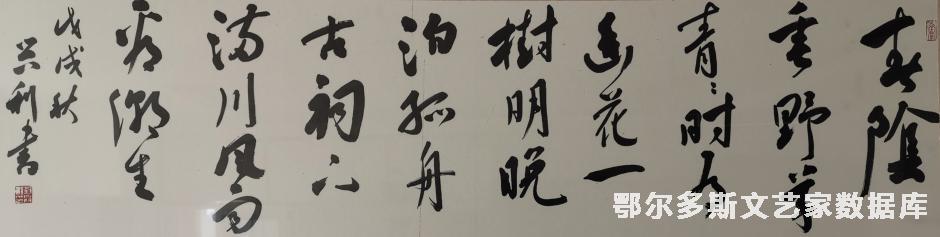 春阴
垂野草
青青时有
幽花一
树明晚
泊孤舟
古祠下
满川风雨
看潮生
戊戌秋
兴利书
鄂尔多斯文艺家数据库